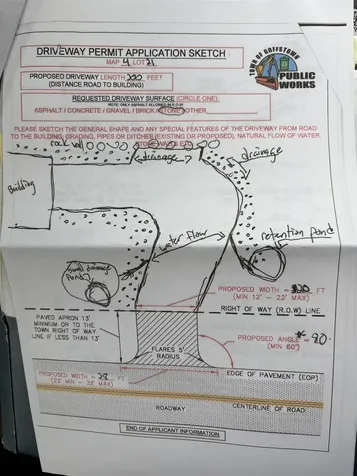 DRIVEWAY PERMIT APPLICATION SKETCH
MAP 4 LOT 21
TOWN OF GOFFSTOWN
PUBLIC WORKS
PROPOSED DRIVEWAY LENGTH 200 FEET
(DISTANCE ROAD TO BUILDING)
REQUESTED DRIVEWAY SURFACE (CIRCLE ONE):
NOTE: ONLY ASPHALT ALLOWED IN R.O.W
ASPHALT / CONCRETE / GRAVEL / BRICK / STONE / OTHER
PLEASE SKETCH THE GENERAL SHAPE AND ANY SPECIAL FEATURES OF THE DRIVEWAY FROM ROAD
TO THE BUILDING; GRADING, PIPES OR DITCHES (EXISTING OR PROPOSED), NATURAL FLOW OF WATER,
STONE WALLS, ETC.
rock wall
drainage
drainage
Building
water flow
retention pond
Small drainage
pond
PROPOSED WIDTH = FT
(MIN 12' - 22' MAX)
RIGHT OF WAY (R.O.W) LINE
PAVED APRON 13'
MINIMUM OR TO THE
TOWN RIGHT OF WAY
LINE IF LESS THAN 13'
PROPOSED ANGLE = 80
(MIN 60°)
FLARES 5'
RADIUS
PROPOSED WIDTH = 28 FT
(22' MIN - 32' MAX)
EDGE OF PAVEMENT (EOP)
ROADWAY
CENTERLINE OF ROAD
END OF APPLICANT INFORMATION